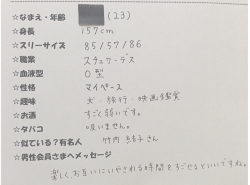 ☆なまえ・年齢 (23)
☆身長 157cm
☆スリーサイズ 85/57/86
☆職業 スチュワーデス
☆血液型 O型
☆性格 マイペース
☆趣味 犬・旅行・映画鑑賞
☆お酒 すごく弱いです。
☆タバコ 吸いません。
☆似ている?有名人 竹内 結子さん
☆男性会員さまへメッセージ
楽しく、お互いにいやされる時間をすごせるといいですね。